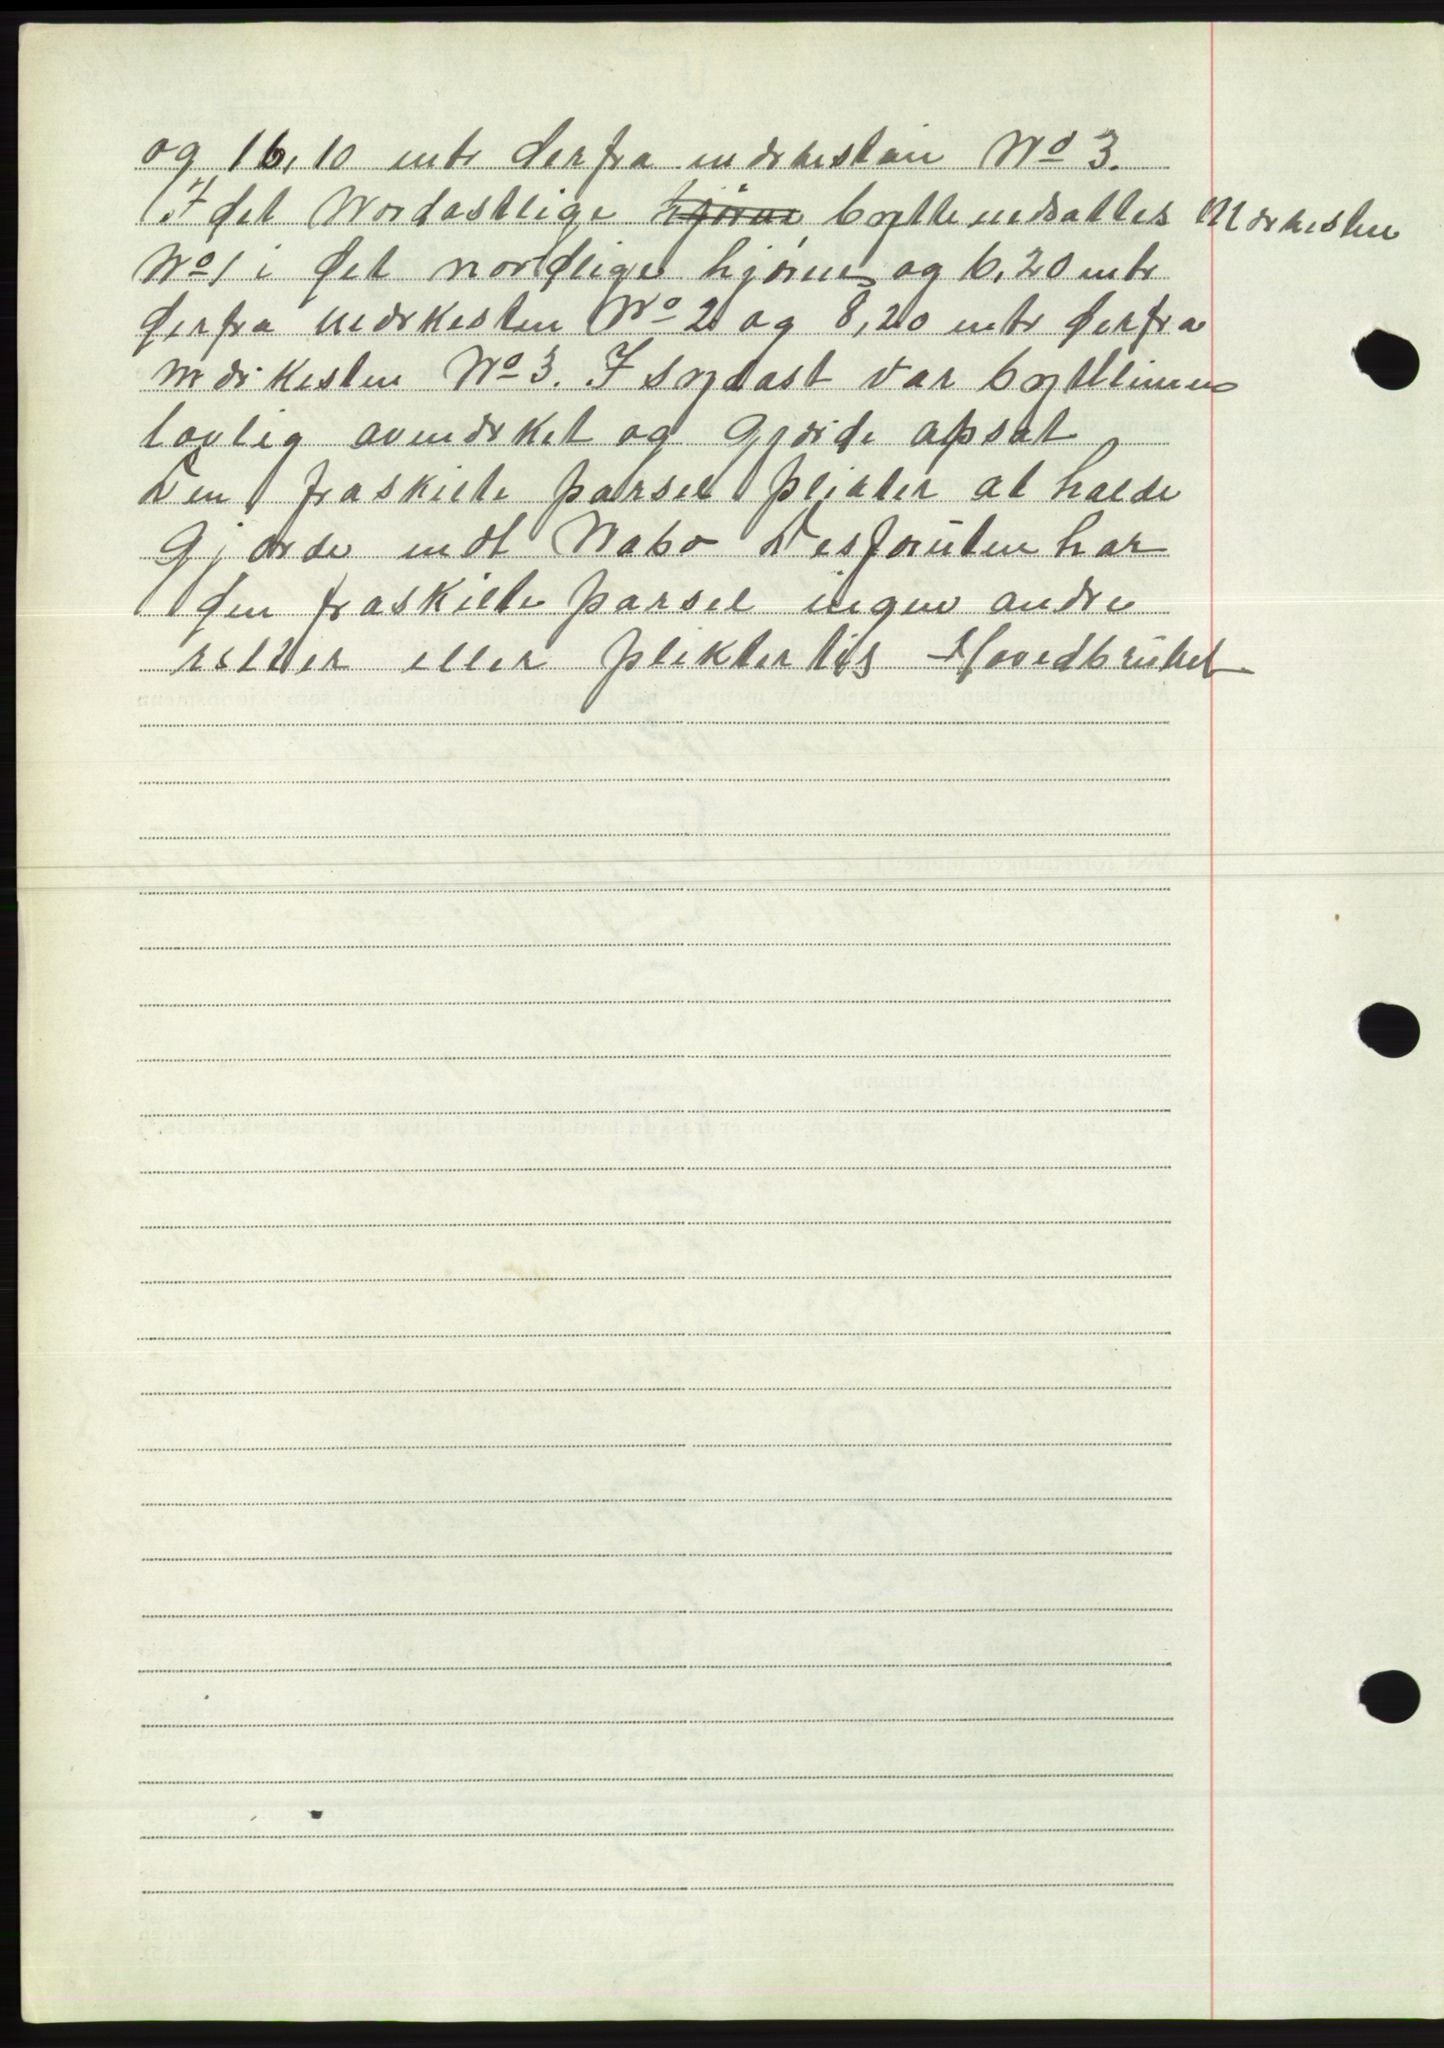 og 16,10 mtr derfra mærkestein No 3.
I det Nordøstlige hjørne bytte nedsattes Mærkesten
No 1 i det nordlige hjørne og 6,20 mtr
derfra merkesten No 2 og 8,20 mtr derfra
mærkesten No 3. I sydøst var byttlinien
lovlig avmerket og Gjærde opsat
Den fraskilte parsel plikter at holde
Gjærde mot Nabo Desforuten har
den fraskilte parsel ingen andre
retter eller plikter til Hovedbruket